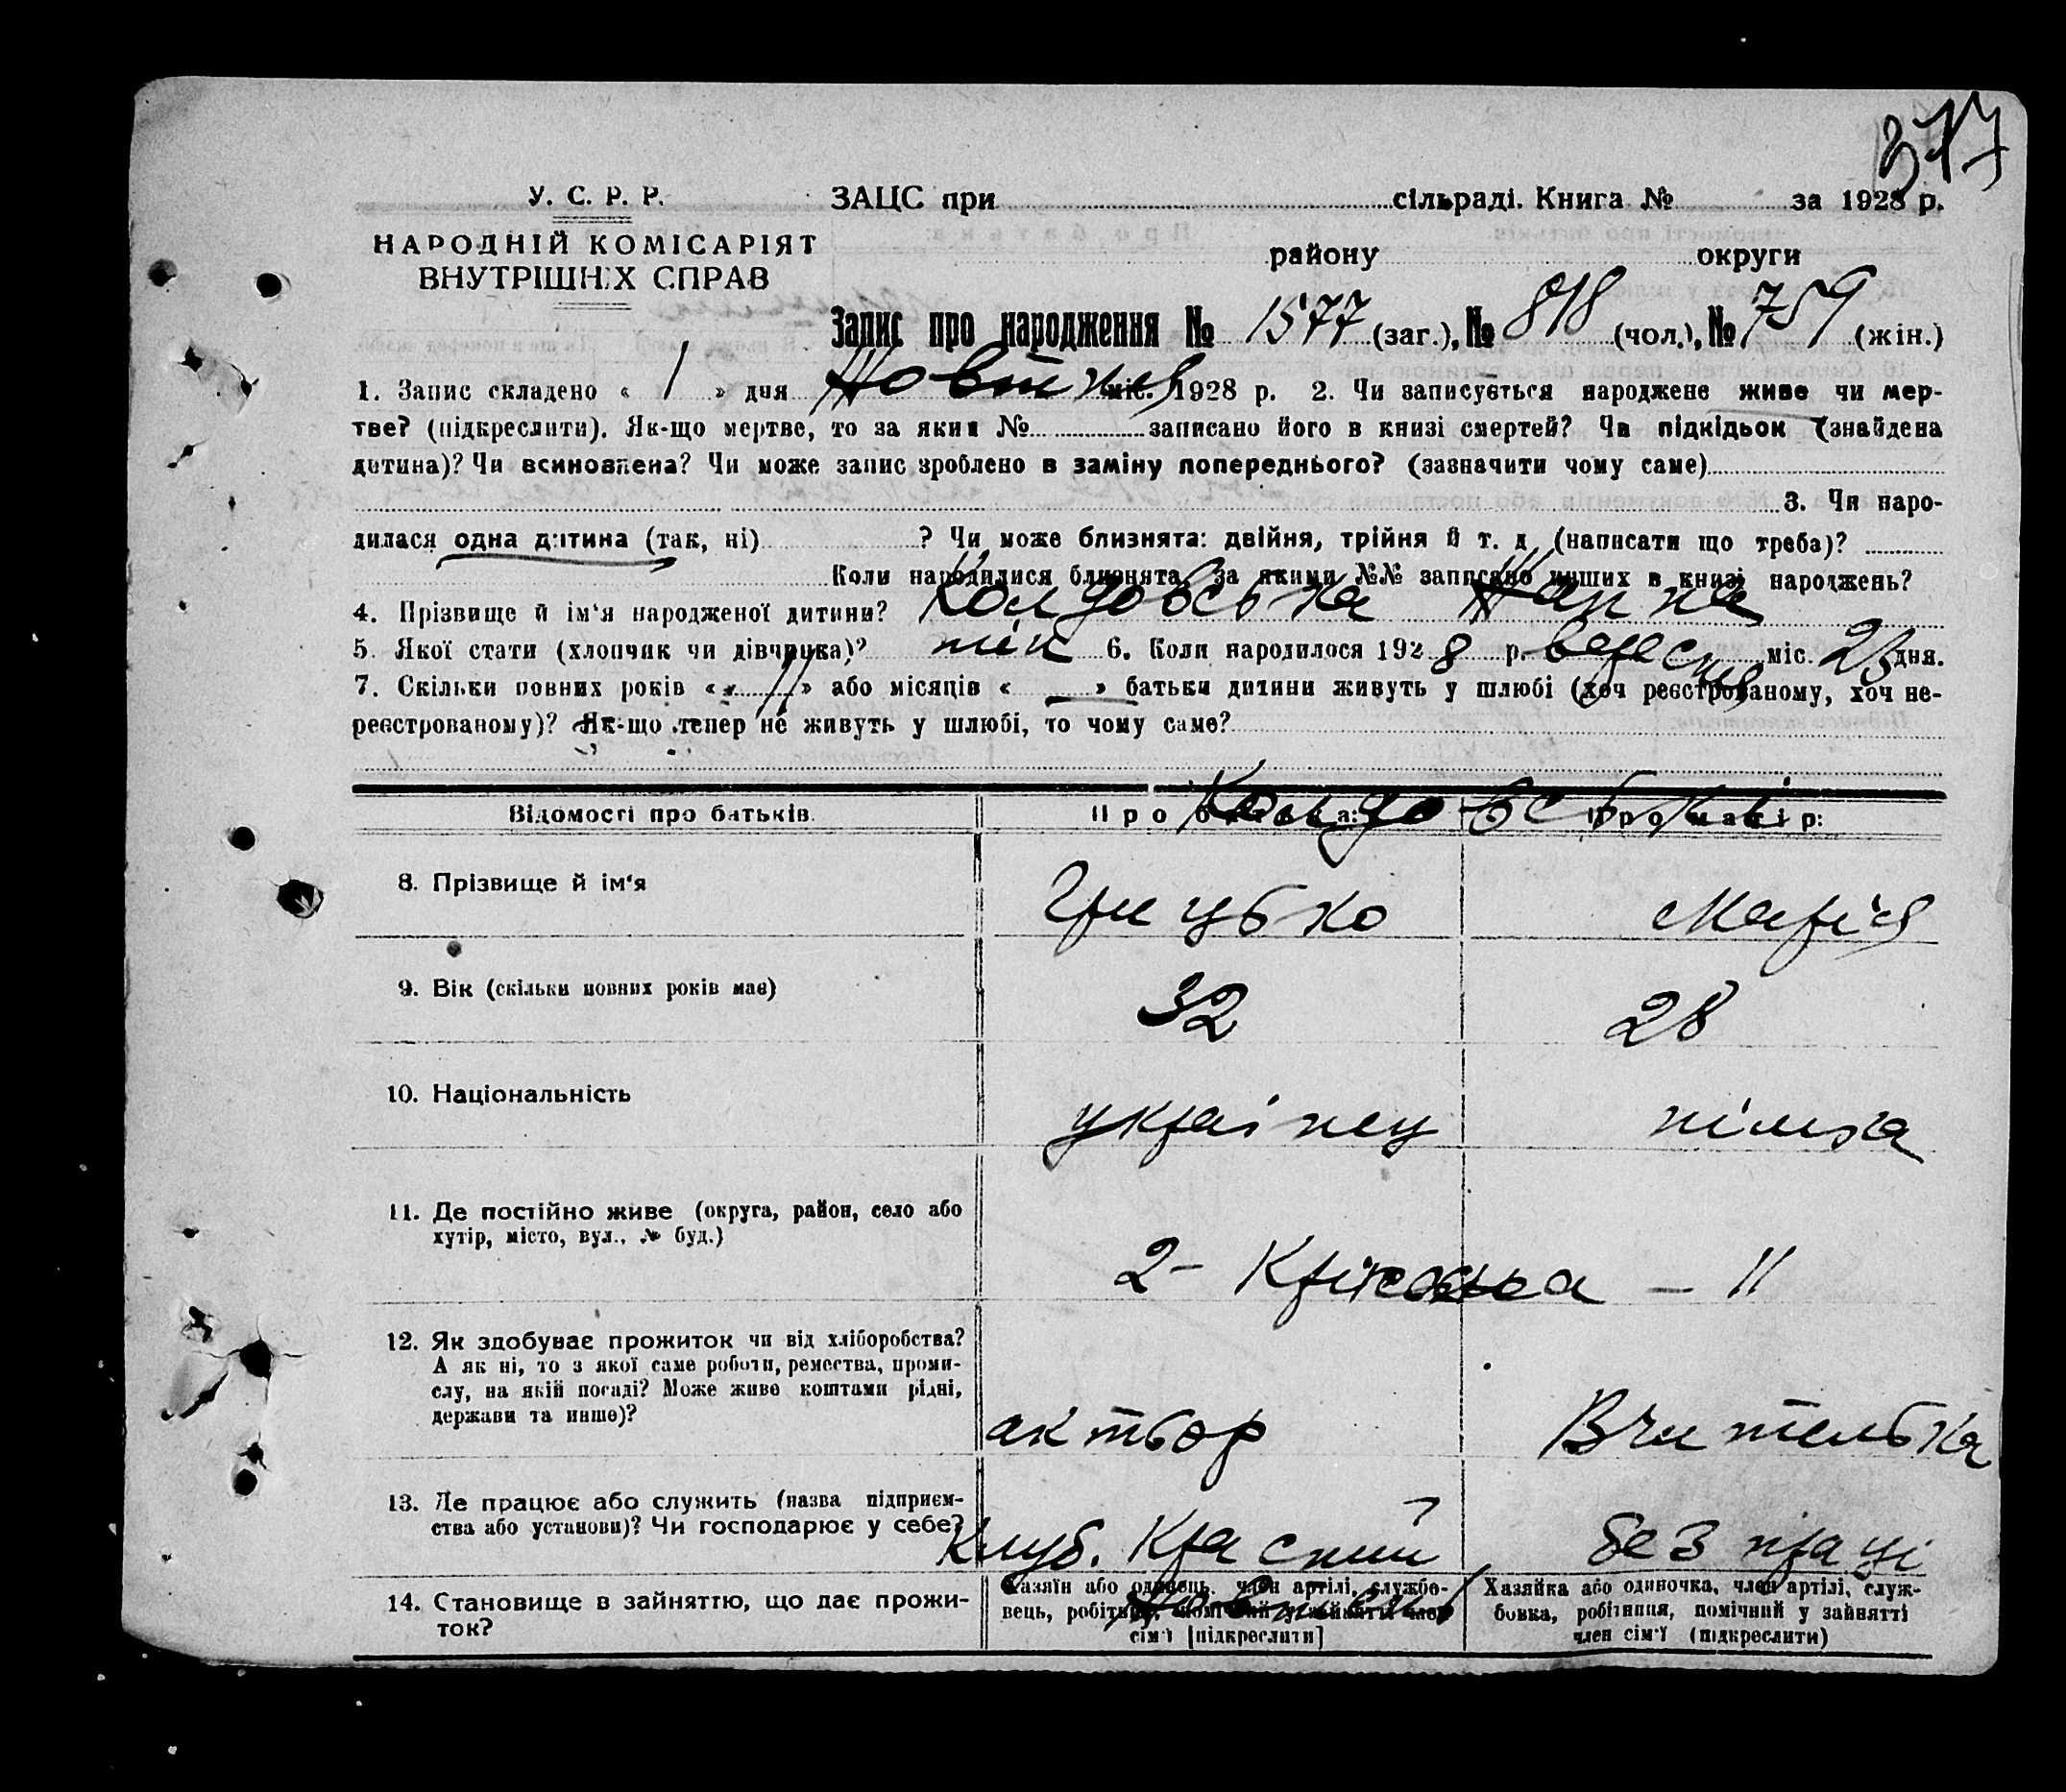 317
У. С. Р. Р.
ЗАЦС при сільраді. Книга № за 1928 р.
НАРОДНІЙ КОМІСАРІЯТ
ВНУТРІШНІХ СПРАВ
району округи
Запис про народження № 1577 (заг.), № 818 (чол.), № 759 (жін.)
1. Запис складено « 1 » дня Жовтня міс. 1928 р. 2. Чи записується народжене живе чи мер-
тве? (підкреслити). Як-що мертве, то за яким № записано його в книзі смертей? Чи підкідьок (знайдена
дитина)? Чи всиновлена? Чи може запис зроблено в заміну попереднього? (зазначити чому саме)
3. Чи наро-
дилася одна дитина (так, ні) ? Чи може близнята: двійня, трійня й т. д. (написати що треба)?
Коли народилися близнята, за якими №№ записано инших в книзі народжень?
4. Прізвище й ім‘я народженої дитини? Жанна
5. Якої стати (хлопчик чи дівчинка)? жін 6. Коли народилося 1928 р. вересня міс. 23 дня.
7. Скільки повних років « 11 » або місяців « — » батьки дитини живуть у шлюбі (хоч реєстрованому, хоч не-
реєстрованому)? Як-що тепер не живуть у шлюбі, то чому саме?
Відомості про батьків. Про батька: Про матір:
8. Прізвище й ім‘я Грицько Марія
9. Вік (скільки повних років має) 32 28
10. Національність українец полька
11. Де постійно живе (округа, район, село або
хутір, місто, вул., № буд.)
2- – 11
12. Як здобуває прожиток чи від хліборобства?
А як ні, то з якої саме роботи, ремества, проми-
слу, на якій посаді? Може живе коштами рідні,
держави та инше)?
актьор Вчителька
13. Де працює або служить (назва підприєм-
ства або установи)? Чи господарює у себе?
Клуб. Красний без праці
14. Становище в зайняттю, що дає прожи-
ток?
Хазяїн або одинець, член артілі, службо-
вець, робітник, помічний у зайнятті член
сім‘ї [підкреслити]
Хазяйка або одиночка, член артілі, служ-
бовка, робітниця, помічний у зайнятті
член сім‘ї (підкреслити)